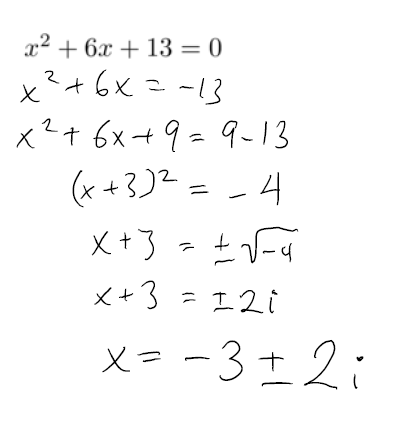 x² + 6x + 13 = 0
x² + 6x = -13
x² + 6x + 9 = 9 - 13
(x + 3)² = -4
x + 3 = ±√-4
x + 3 = ±2i
x = -3 ± 2i